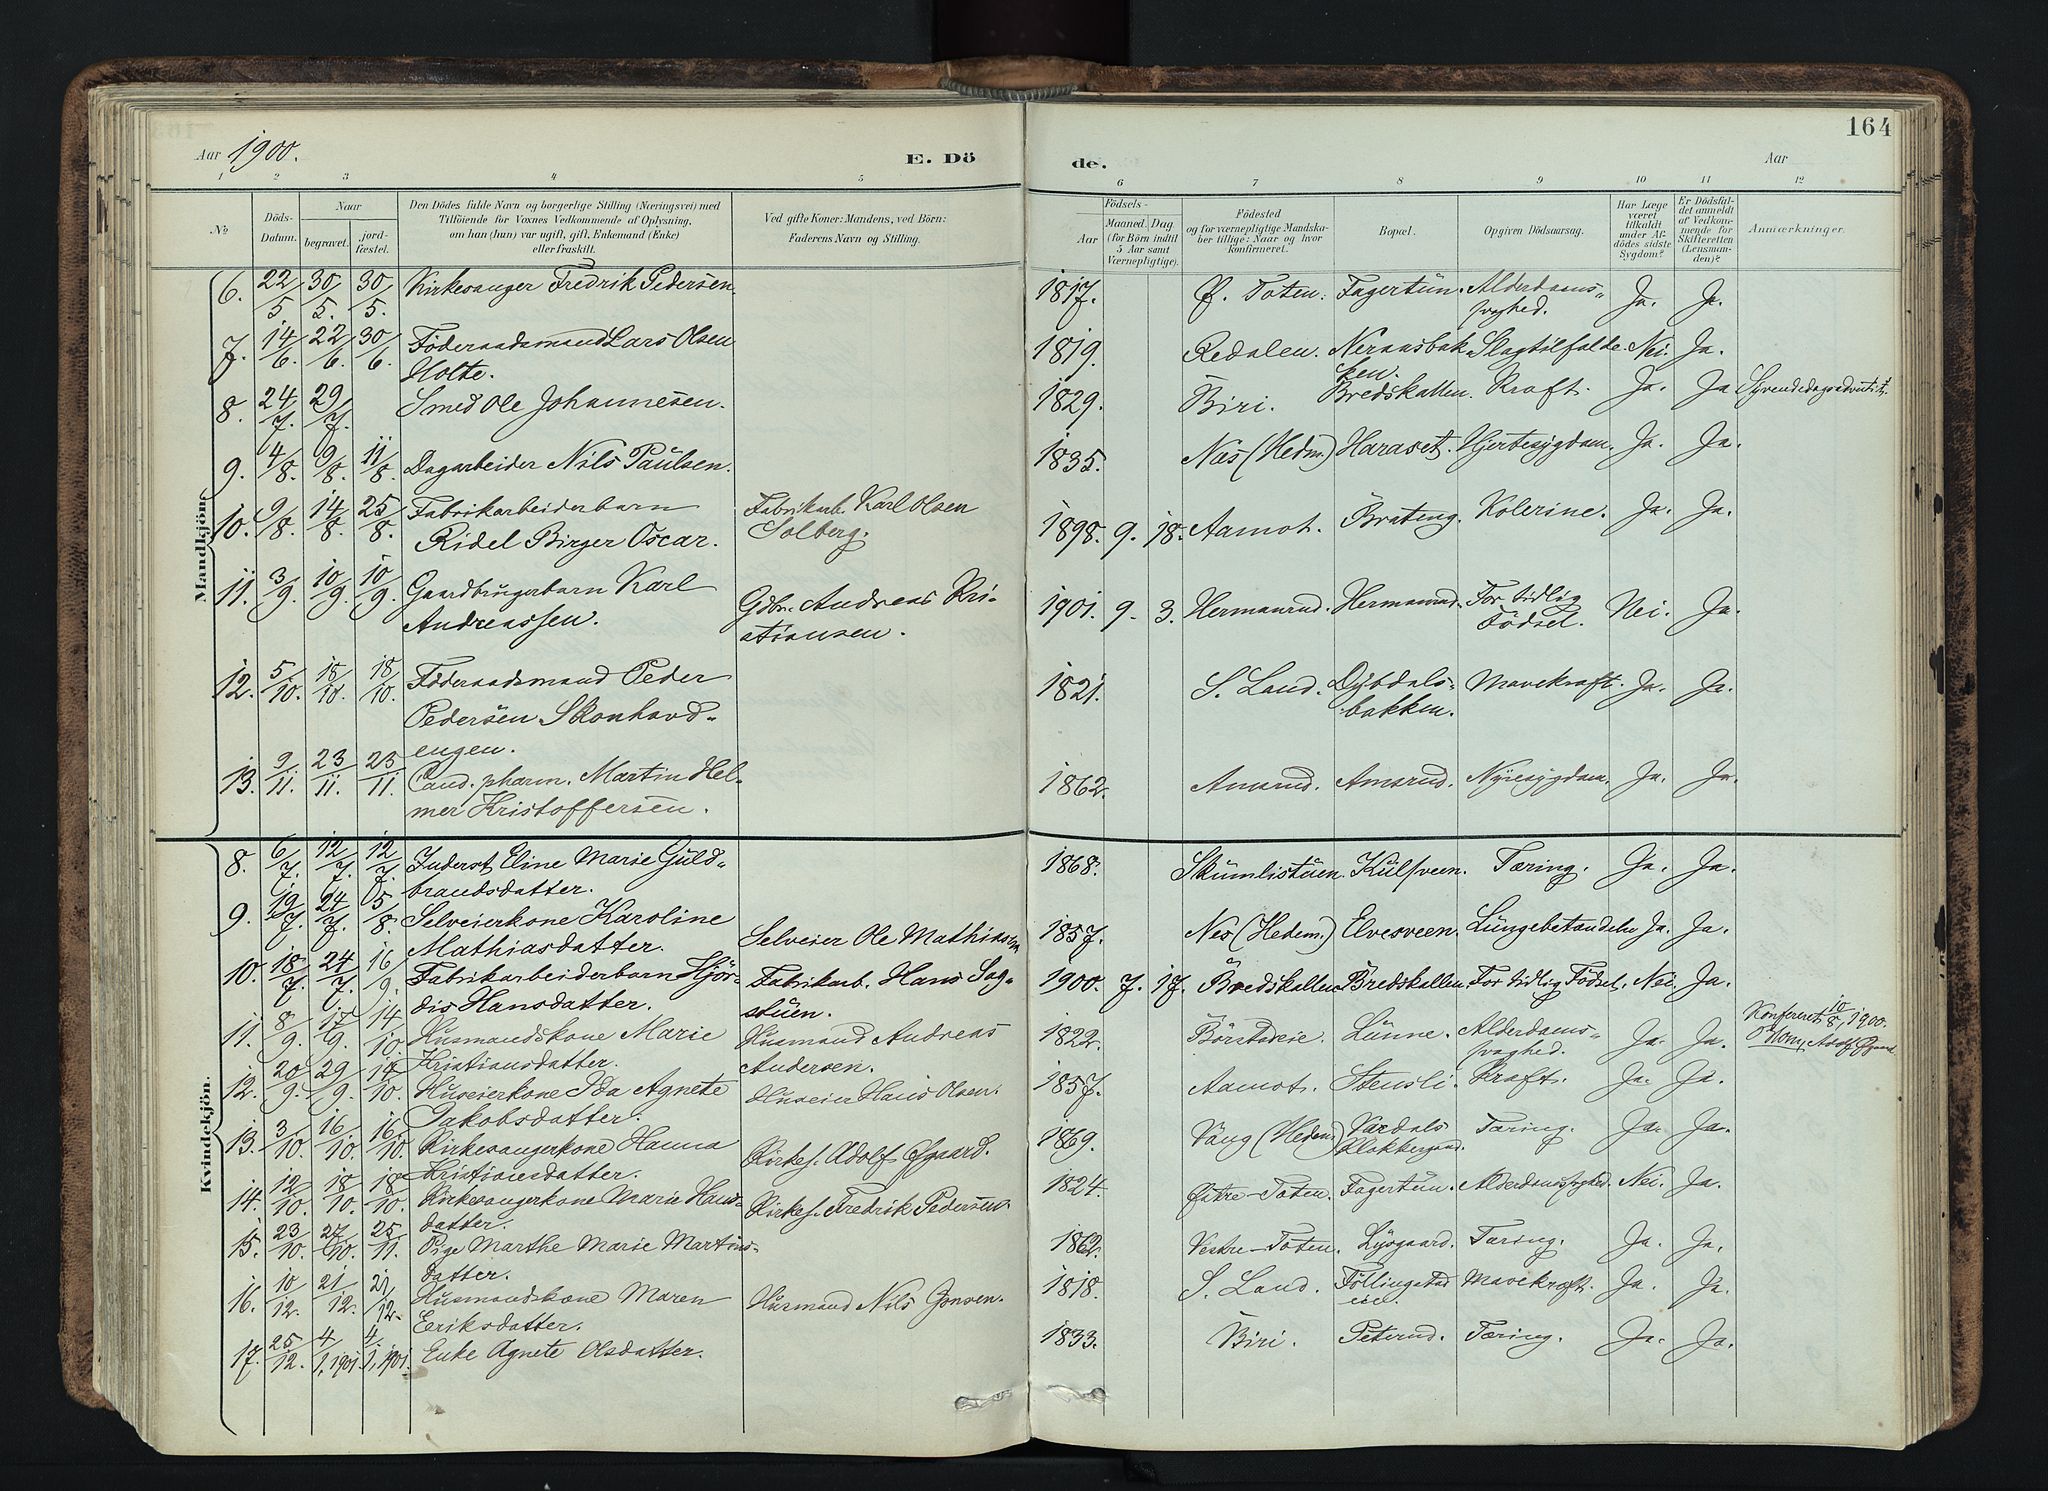 164
Aar 1900.
E. Dö
de.
Aar
1 2 3 4 5 6 7 8 9 10 11 12
No
Döds-Datum.
Naar
begravet.
jord-fæstet.
Den Dödes fulde Navn og borgerlige Stilling (Næringsvei) med
Tilföiende for Voxnes Vedkommende af Oplysning,
om han (hun) var ugift, gift, Enkemand (Enke)
eller fraskilt.
Ved gifte Koner: Mandens, ved Börn:
Faderens Navn og Stilling.
Födsels-
Aar
Maaned. Dag.
(for Börn indtil
5 Aar samt
Værnepligtige).
Födested
og for værnepligtige Mandska-
ber tillige: Naar og hvor
konfirmeret.
Bopæl.
Opgiven Dödsaarsag.
Har Læge
været
tilkaldt
under Af-
dödes sidste
Sygdom?
Er Dödsfal-
det anmeldt
af Vedkom-
mende for
Skifteretten
(Lensman-
den)?
Anmærkninger.
Mandkjön.
6. 22/5 30/5. 30/5. Kirkesanger Fredrik Pedersen. 1817. Ø. Toten. Fagertun. Alderdoms-svaghed. Ja. Ja.
7. 14/6. 22/6. 30/6. Föderaadsmand Lars Olsen
Holte. 1819. Redalen. Neraasbakken. Slagtilfælde. Nei. Ja.
8. 24/7. 29/7. Smed Ole Johannesen. 1829. Biri. Bredskallen. Kræft. Ja. Ja Syvendedagsadventist.
9. 4/8. 9/8. 11/8. Dagarbeider Nils Paulsen. 1835. Næs (Hedm.) Haraset. Hjertesygdom. Ja. Ja.
10. 9/8. 14/8. 25/8. Fabrikarbeiderbarn
Ridel Birger Oscar. Fabrikarb. Karl Olsen
Solberg. 1898. 9. 18. Aamot. Brateng. Kolerine. Ja. Ja.
11. 3/9. 10/9. 10/9. Gaardbrugerbarn Karl
Andreassen. Gdbr. Andreas Kri-
stiansen. 1901. 9. 3. Hermanrud. Hermanrud. For tidlig
Födsel. Nei. Ja.
12. 5/10. 18/10. 18/10. Föderaadsmand Peder
Pedersen Skonhovd-
engen. 1821. S. Land. Dybdals-
bakken. Mavekræft. Ja. Ja.
13. 9/11. 23/11. 23/11. Cand. pharm. Martin Hel-
mer Kristoffersen. 1862. Amsrud. Amsrud. Nyresygdom. Ja. Ja.
Kvindekjön.
8. 6/7. 12/7. 12/7. Inderst Eline Marie Guld-
brandsdatter. 1868. Skumlistuen. Kulsveen. Tæring. Ja. Ja.
9. 19/7. 24/7. 5/8. Selveierkone Karoline
Mathiasdatter. Selveier Ole Mathiassen 1857. Nes (Hedem.) Elvesveen. Lungebetændelse Ja. Ja.
10. 18/7. 24/7. 16/9. Fabrikarbeiderbarn Hjör-
dis Hansdatter. Fabrikarb. Hans Sag-
stuen. 1900. 7. 17. Bredskallen Bredskallen. For tidlig Födsel. Nei. Ja.
11. 8/9. 17/9. 14/10. Husmandskone Marie
Kristiansdatter. Husmand Andreas
Andersen. 1822. Börstadeie. Lunne. Alderdoms-
svaghed. Ja. Ja. Konfereret 10/8, 1900.
Adolf Øgaard.
12. 20/9. 29/9. 14/10. Huseierkone Ida Agnete
Jakobsdatter. Huseier Hans Olsen. 1857. Aamot. Stensli. Kræft. Ja. Ja.
13. 3/10. 16/10. 16/10. Kirkesangerkone Hanna
Kristiansdatter. Kirkes. Adolf Øgaard. 1869. Vang (Hedem.) Vardals
Klokkergaard. Tæring. Ja. Ja.
14. 12/10. 18/10. 18/10. Kirkesangerkone Marie Hans-
datter. Kirkes. Fredrik Pedersen. 1824. Østre-Toten. Fagertun. Alderdomssvaghed. Nei. Ja.
15. 23/10. 27/10. 25/11. Pige Marthe Marie Martins-
datter. 1862. Vestre-Toten. Lysgaard. Tæring. Ja. Ja.
16. 10/12. 21/12. 21/12. Husmandskone Maren
Eriksdatter. Husmand Nils Jonsen. 1818. S. Land. Föllingstad
eie. Mavekræft. Ja. Ja.
17. 25/12. 4/1, 1901. 4/1, 1901. Enke Agnete Olsdatter. 1833. Biri. Peterud. Tæring. Ja. Ja.